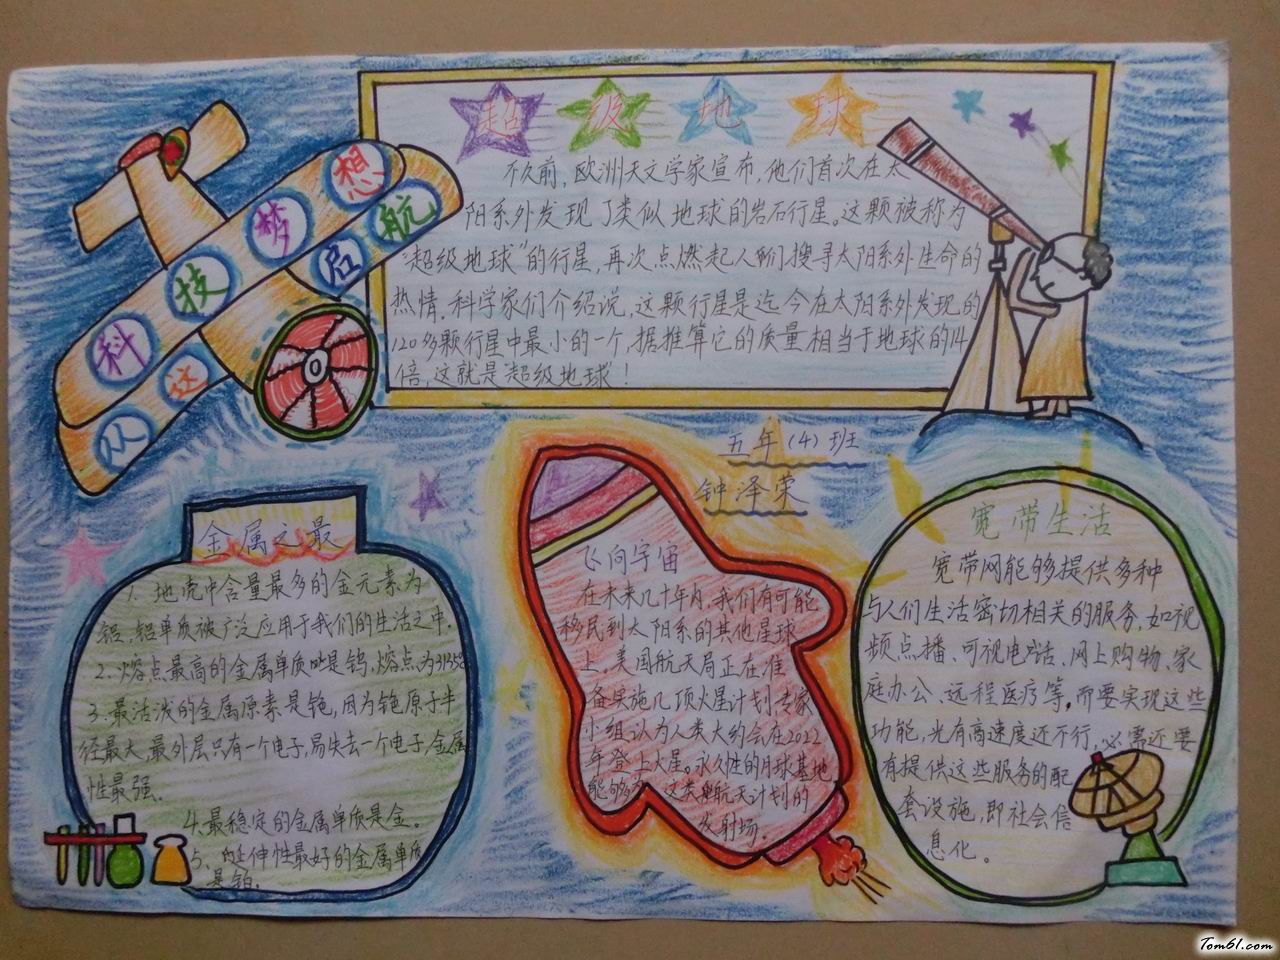 科技梦想
从这启航
超级地球
不久前，欧洲天文学家宣布，他们首次在太
阳系外发现了类似地球的岩石行星。这颗被称为
“超级地球”的行星，再次点燃起人们搜寻太阳系外生命的
热情。科学家们介绍说，这颗行星是迄今在太阳系外发现的
120多颗行星中最小的一个，据推算它的质量相当于地球的14
倍，这就是“超级地球”！
五年(4)班
钟泽荣
金属之最
1、地壳中含量最多的金元素为
铝，铝单质被广泛应用于我们的生活之中。
2、熔点最高的金属单质是钨，熔点为
3、最活泼的金属原素是铯，因为铯原子半
径最大，最外层只有一个电子，易失去一个电子，金属
性最强。
4、最稳定的金属单质是金。
5、延伸性最好的金属单质
是铂。
飞向宇宙
在未来几十年内，我们有可能
移民到太阳系的其他星球
上。美国航天局正在准
备实施几项火星计划，专家
小组认为人类大约会在2022
年登上火星。永久性的月球基地
能够为这类航天计划的
发射场。
宽带生活
宽带网能够提供多种
与人们生活密切相关的服务，如视
频点播、可视电话、网上购物、家
庭办公、远程医疗等，而要实现这些
功能，光有高速度还不行，必需还要
有提供这些服务的配
套设施，即社会信
息化。
Tom61.com